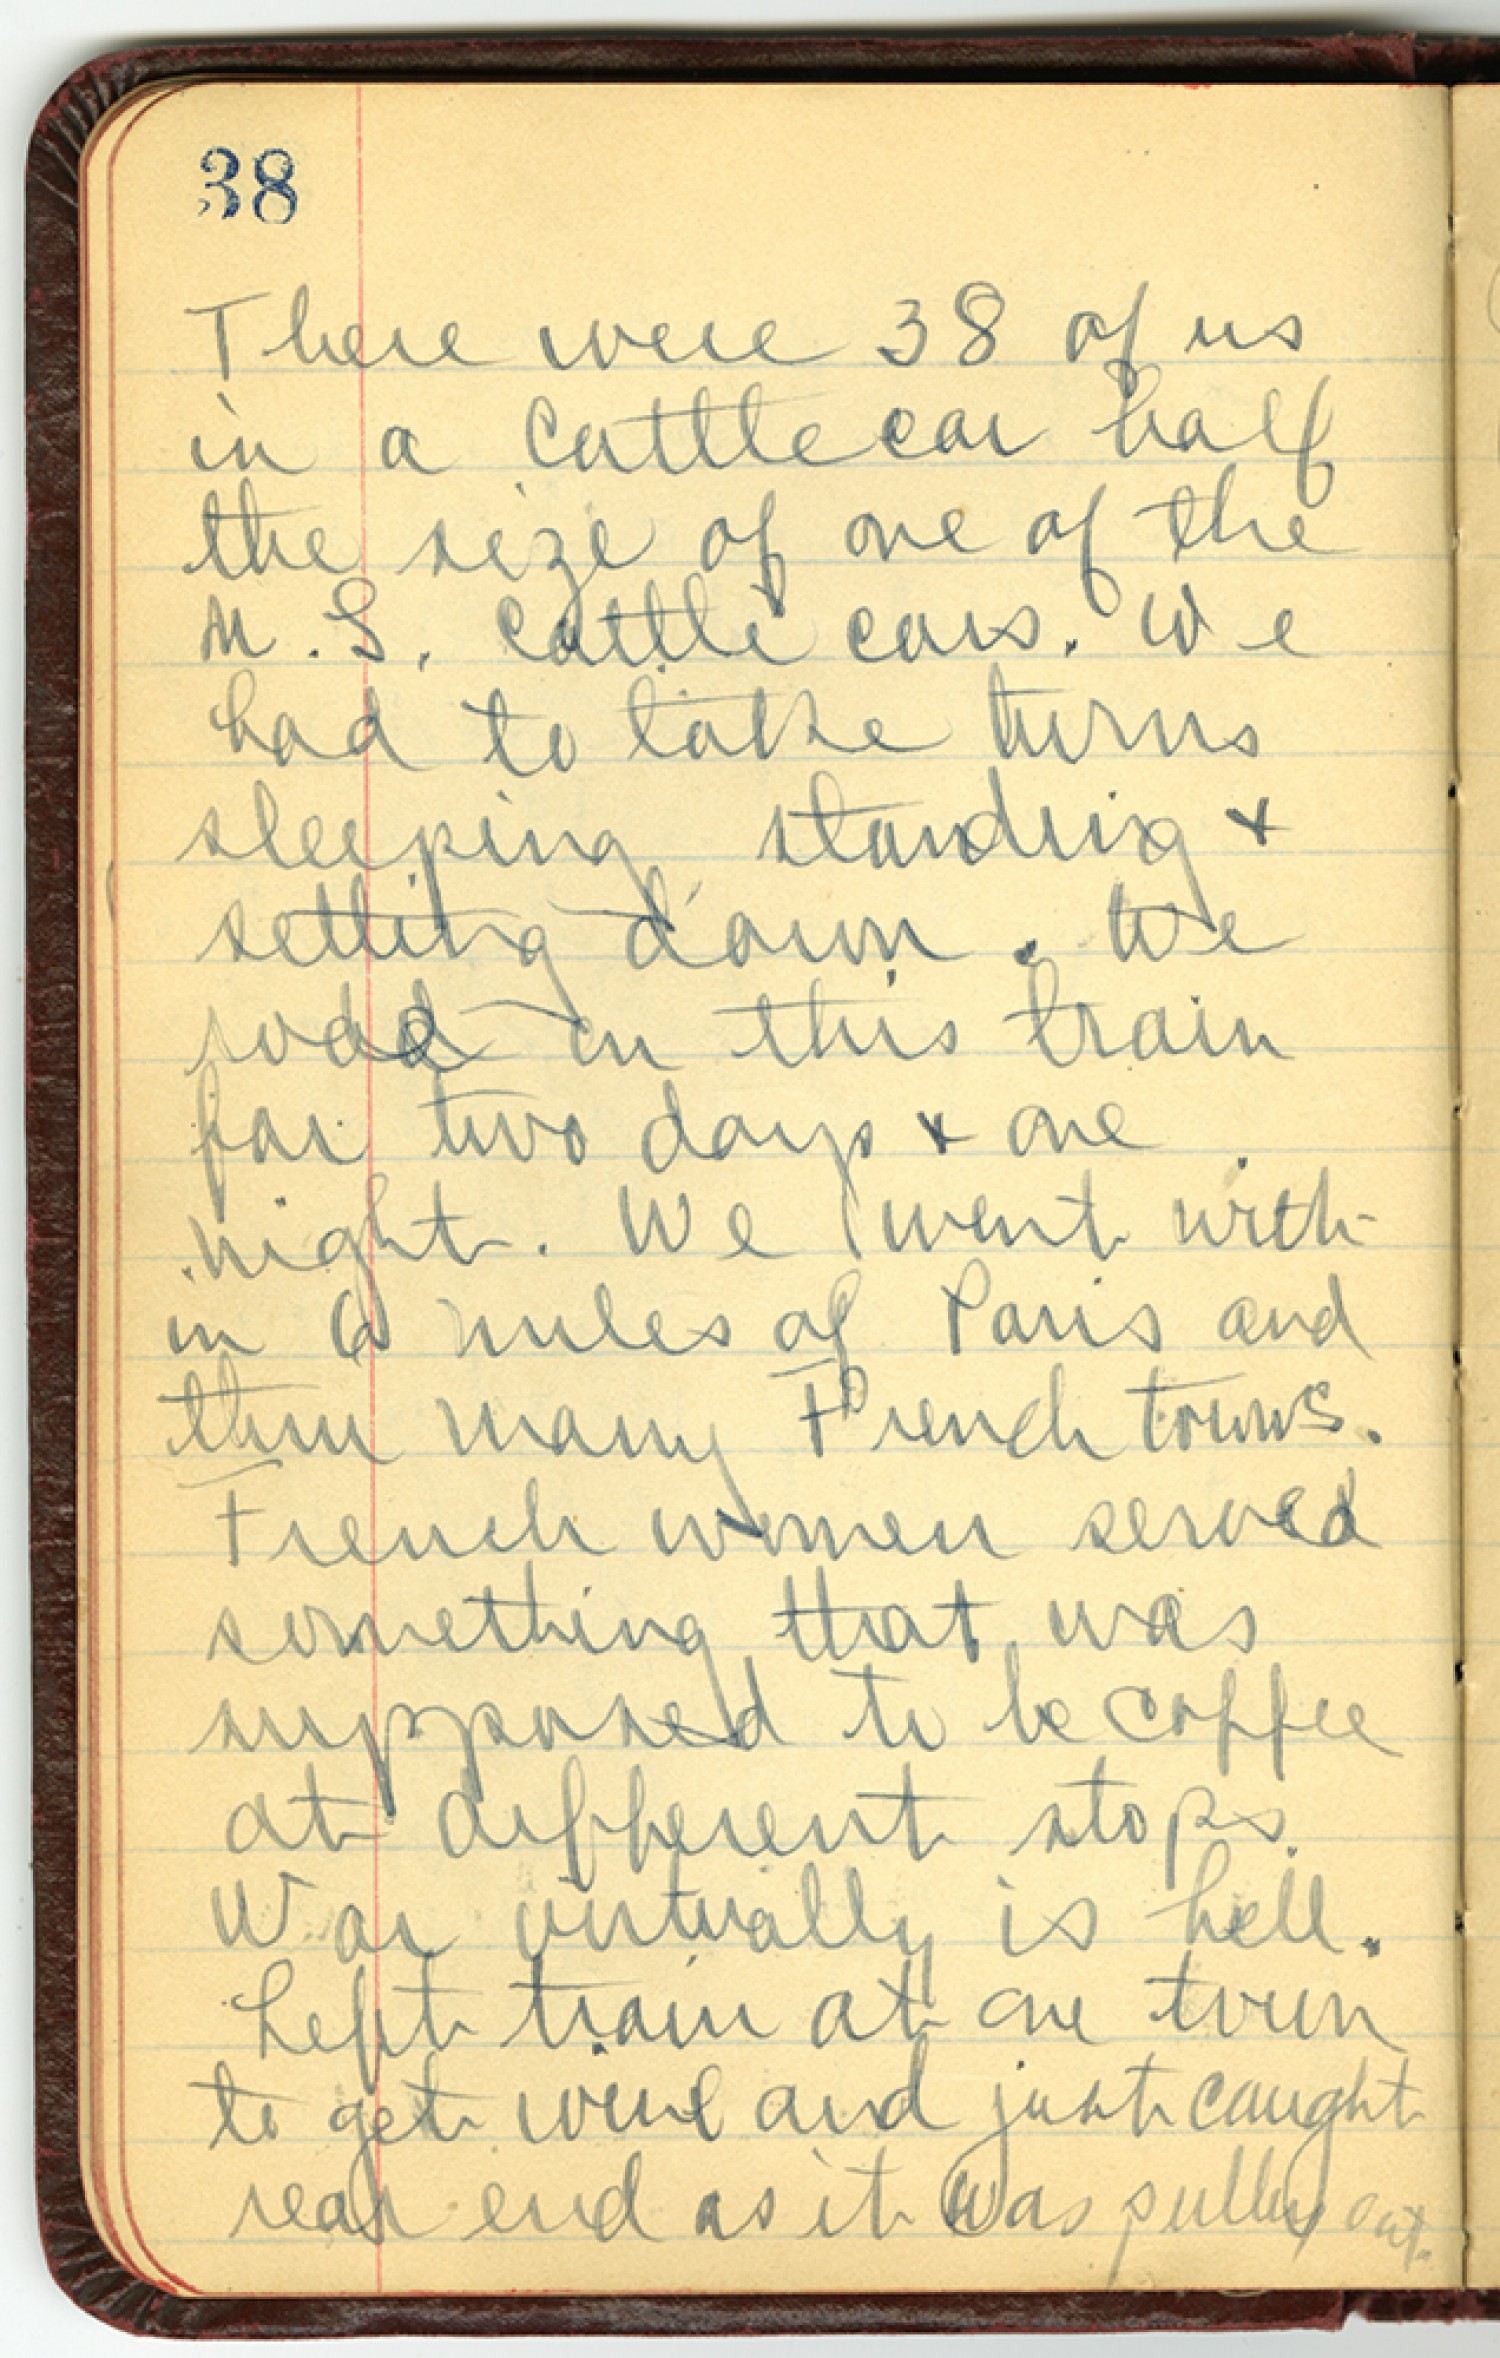 38
There were 38 of us
in a cattle car half
the size of one of the
U.S. cattle cars. We
had to take turns
sleeping standing &
setting down. We
rode in this train
for two days & one
night. We went with-
in 6 miles of Paris and
thru many French towns.
French women served
something that was
supposed to be coffee
at different stops.
War virtually is hell.
Left train at one town
to get wine and just caught
rear end as it was pulling out.